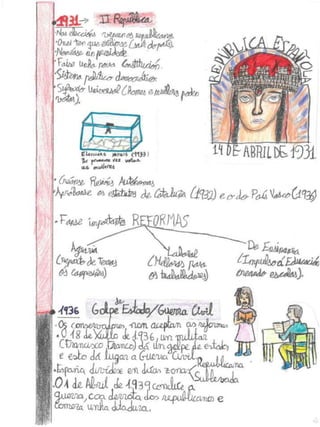 1931→ II República
•Nas eleccións vencen os republicanos
•O rei ten que exiliarse (saír do país).
•Noméase un presidente
•Faise unha nova Constitución.
•Sistema político democrático
•Sufraxio Universal (homes e mulleres poden
votar).
REPÚBLICA ESPAÑOLA
14 DE ABRIL DE 1931
Eleccións xerais (1933)
Por primeira vez votan
as mulleres
•Créanse Rexións Autónomas
•Apróbanse os estatutos de Cataluña (1932) e o do País Vasco (1936)
•Fanse importantes REFORMAS
Agraria
(reparto de Terras
ós campesiños)
Laboral
(Melloras para
os traballadores)
De Ensinanza
(Impulso á Educación
creando escolas).
•1936 Golpe de Estado/Guerra Civil
•Os conservadores, non aceptan as reformas
•O 18 de Xullo de 1936, un militar
(Francisco Franco) dá un golpe de estado
e esto dá lugar a Guerra Civil.
•España divídese en dúas zonas
Republicana
Sublevada
•O 1 de Abril de 1939 conclúe a
guerra, coa derrota dos republicanos e
comeza unha ditadura.